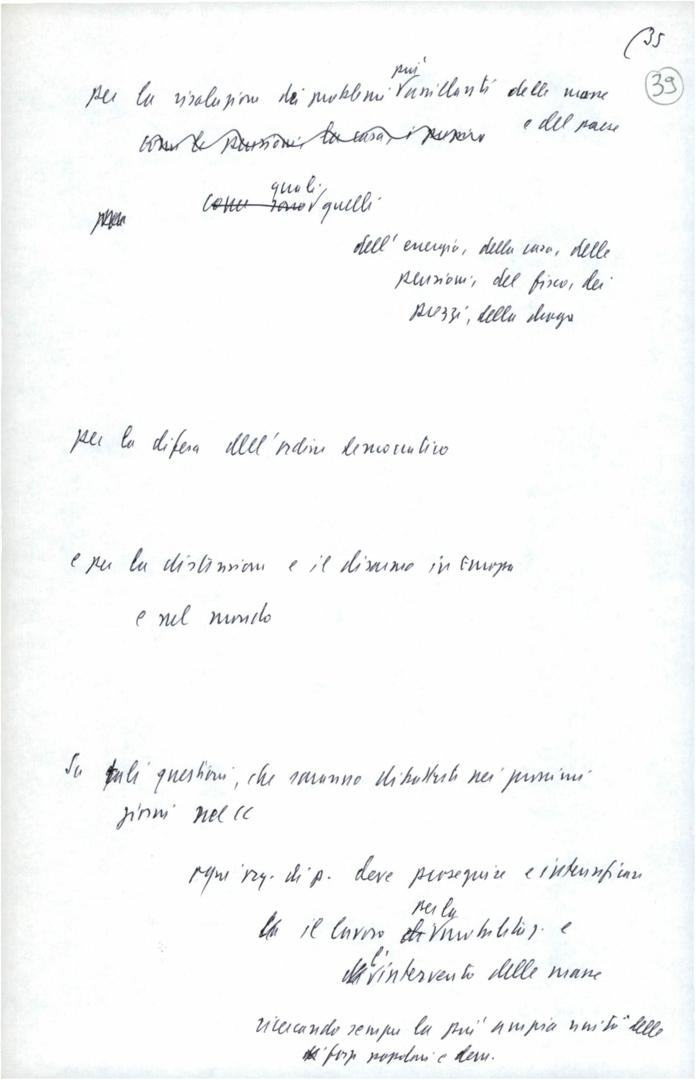 35
39
più
per la risoluzione dei problemi assillanti delle masse
e del paese
come le pensioni, la casa, i
quali
come sono quelli
dell'energia, della casa, delle
pensioni, del fisco, dei
prezzi, della droga
per la difesa dell'ordine democratico
e per la distensione e il disarmo in Europa
e nel mondo
Su tali questioni, che saranno dibattute nei prossimi
giorni nel CC
ogni org. di p. deve proseguire e intensificare
il lavoro di per la mobilitaz. e
l'intervento delle masse
ricercando sempre la più ampia unità delle
forze popolari e dem.